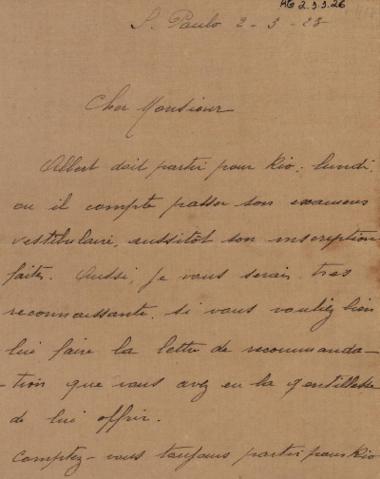 AG 2.3.3.26
S. Paulo 2-3-28
Cher Monsieur
Albert doit partir pour Rio, lundi,
ou il compte passer son examens
vestibulaire, aussitôt son inscription
faites. Aussi, je vous serais tres
reconnaissante, si vous vouliez bien
lui faire la lettre de recommanda-
-tion que vous avez eu la gentillesse
de lui offrir.
Comptez-vous toujours partir pour Rio